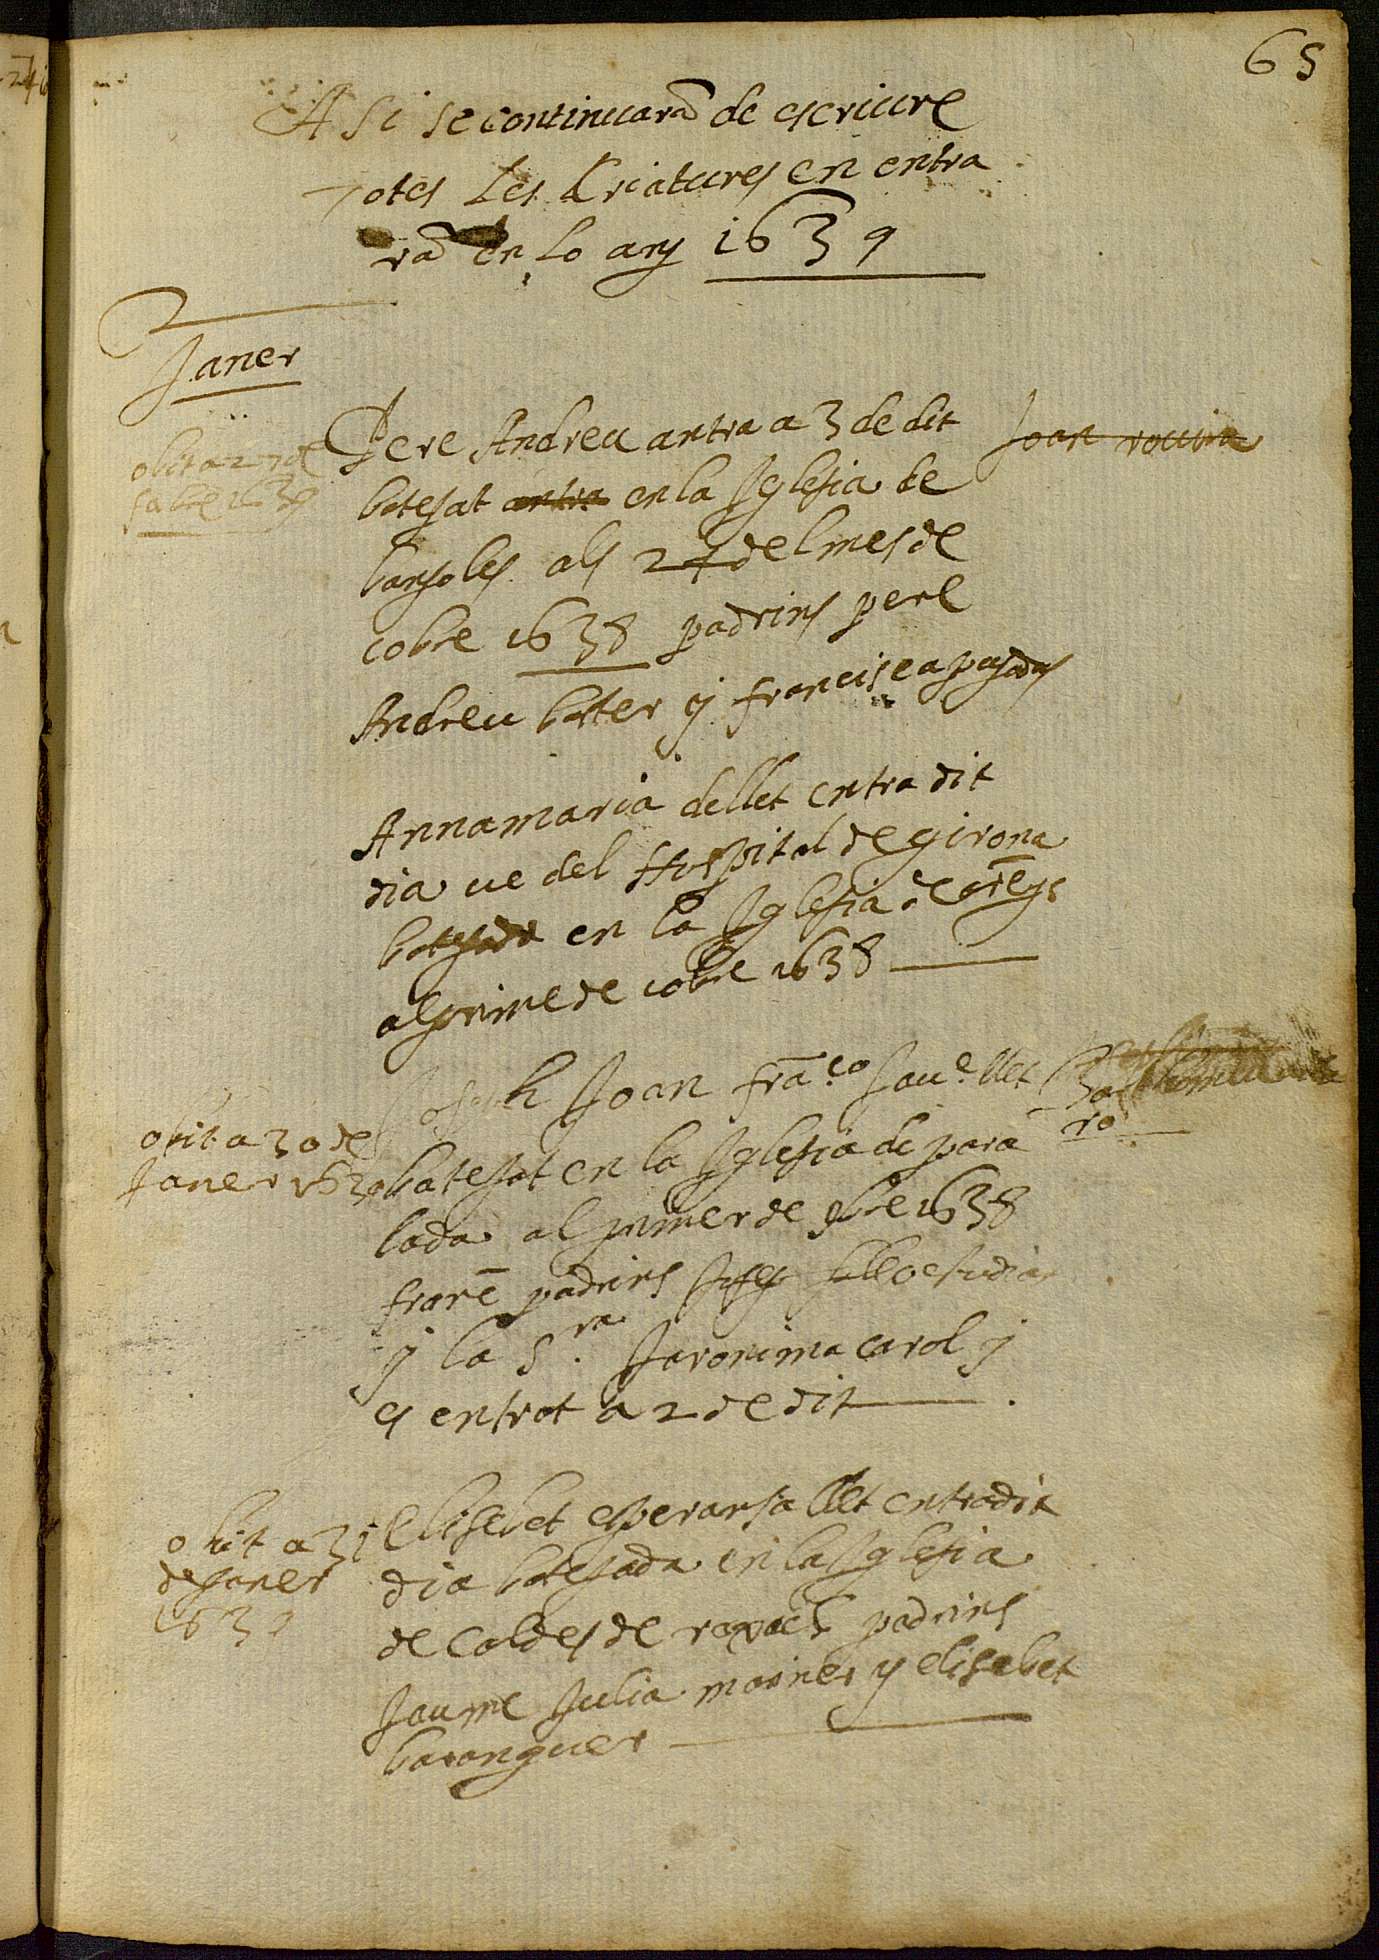 65
Asi se continuarā de escriure
totes les Criatures en entra
rā en lo any 1639
Janer
obit a 27 de
sabre 1639
Pere Andreu antra a 3 de dit
batejat antra en la Iglesia de
banyoles als 27 del mes de
cobre 1638 padrins pere
Andreu batter y francisca pujades
Joan rovira
Annamaria dellet entra dit
dia ve del Hospital de girona
batejada en la Iglesia de
al prime de cobre 1638
obit a 30 de
Janer 1639
Joseph Joan frā.co Jau.e llet
batejat en la Iglesia de para
lada al primer de 9bre 1638
padrins estudia
y la S.ra Jaronima carol y
es entrat a 2 de dit
ro
obit a 31
de Janer
1639
Elisebet esperansa llet entra dit
dia batejada en la Iglesia
de Caldes de padrins
Jaume Julia mariner y elisabet
baranguer